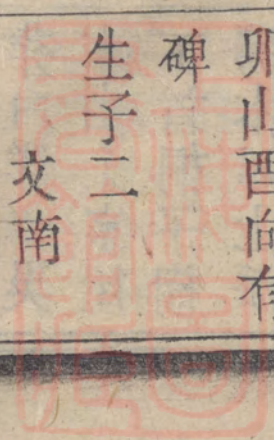 卯山酉向有
碑
生子二
文南